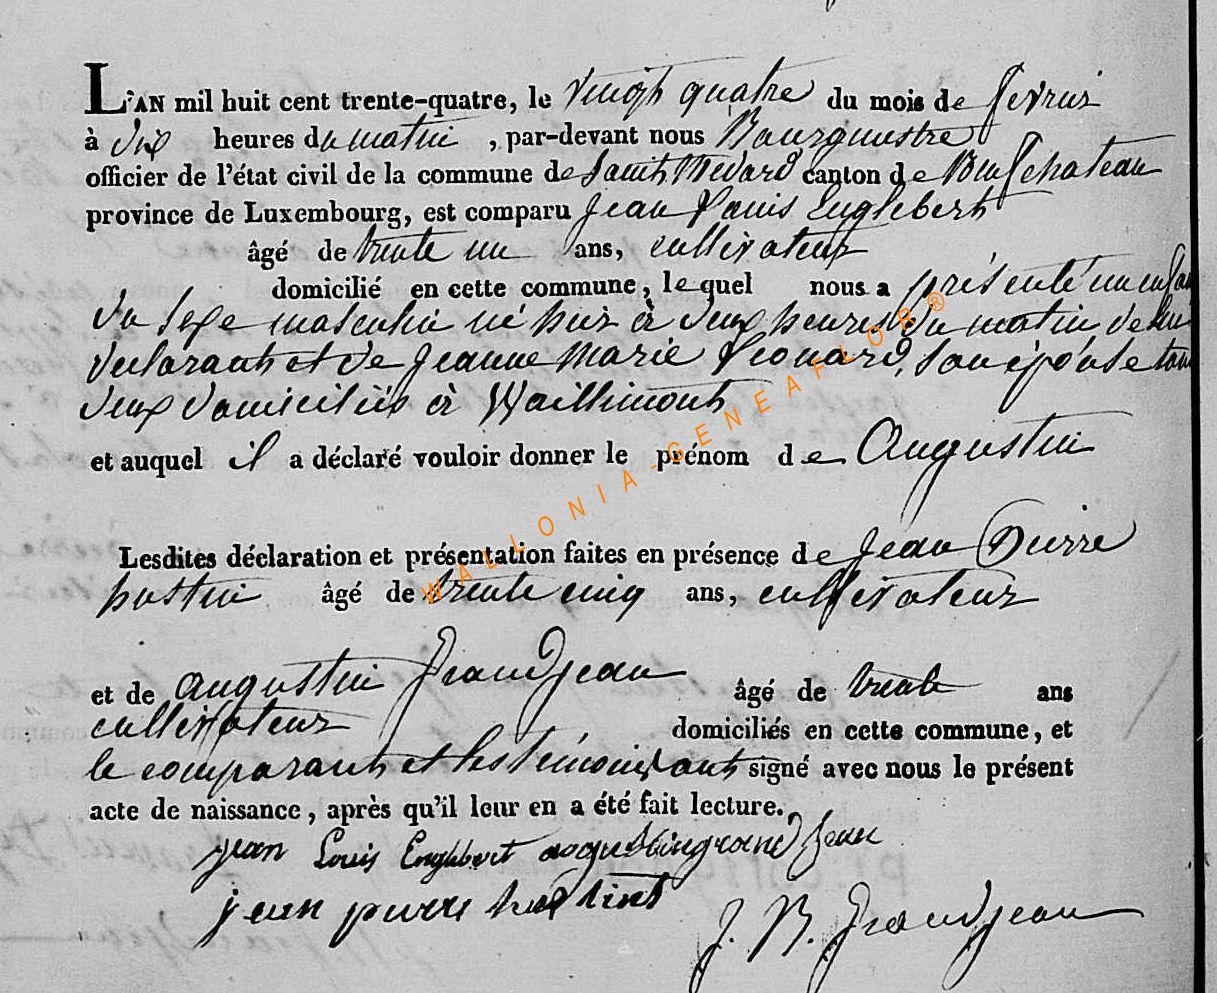 L'AN mil huit cent trente-quatre, le vingt quatre du mois de fevrier
à dix heures du matin, par-devant nous Bourguestre
officier de l'état civil de la commune de Saint Medard canton de Neufchateau
province de Luxembourg, est comparu Jean Louis Englebert
âgé de trente un ans, cultivateur
domicilié en cette commune, lequel nous a présenté un enfant
du sexe masculin né hier à deux heures du matin de lui
declarant et de Jeanne Marie son épouse tous
deux domiciliés à
et auquel il a déclaré vouloir donner le prénom de Augustin
Lesdites déclaration et présentation faites en présence de Jean Pierre
hostin âgé de trente cinq ans, cultivateur
et de augustin Grandjean âgé de trente ans
cultivateur domiciliés en cette commune, et
le comparant et les témoins ont signé avec nous le présent
acte de naissance, après qu'il leur en a été fait lecture.
jean Louis Englebert augustin grand jean
jean pierre
J. B. Grandjean
WALLONIA-GENEAFLOR®